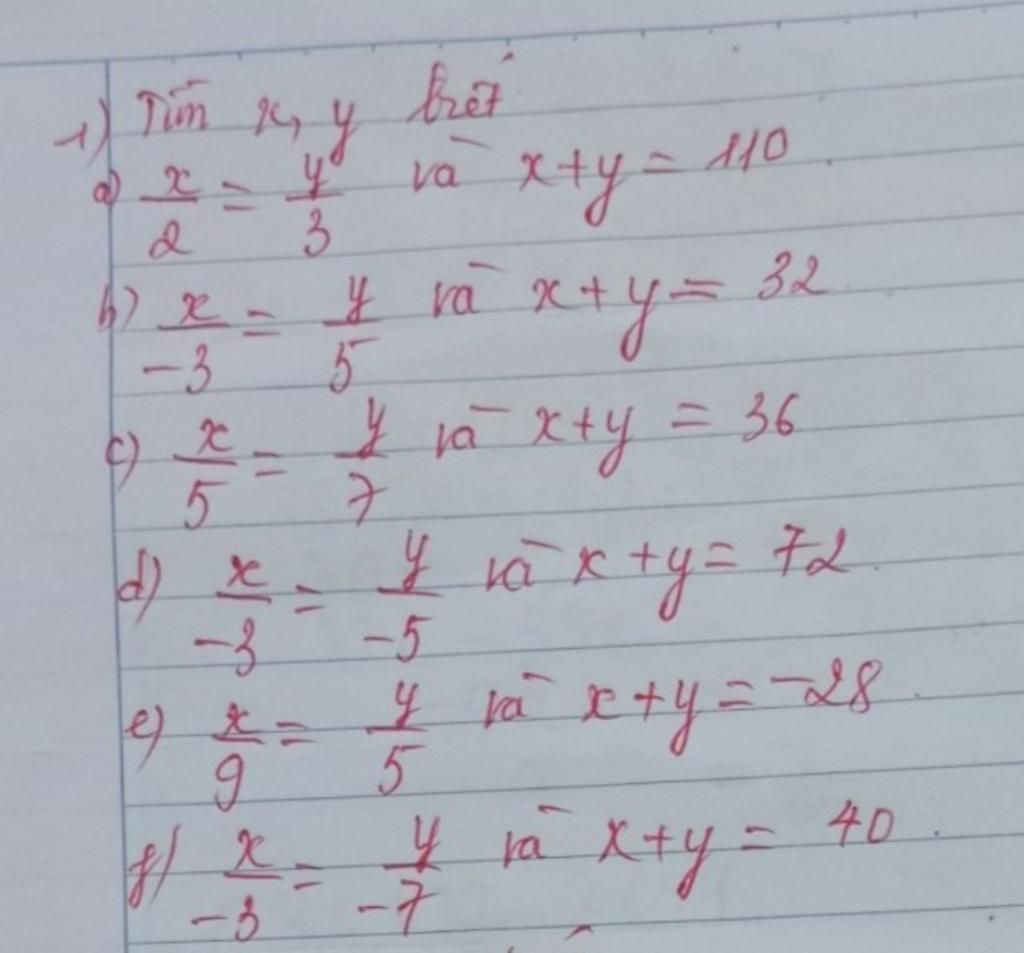 1) Tìm x, y biết
a) x/2 = y/3 và x+y = 110
b) x/-3 = y/5 và x+y = 32
c) x/5 = y/7 và x+y = 36
d) x/-3 = y/-5 và x+y = 72
e) x/9 = y/5 và x+y = -28
f) x/-3 = y/-7 và x+y = 40